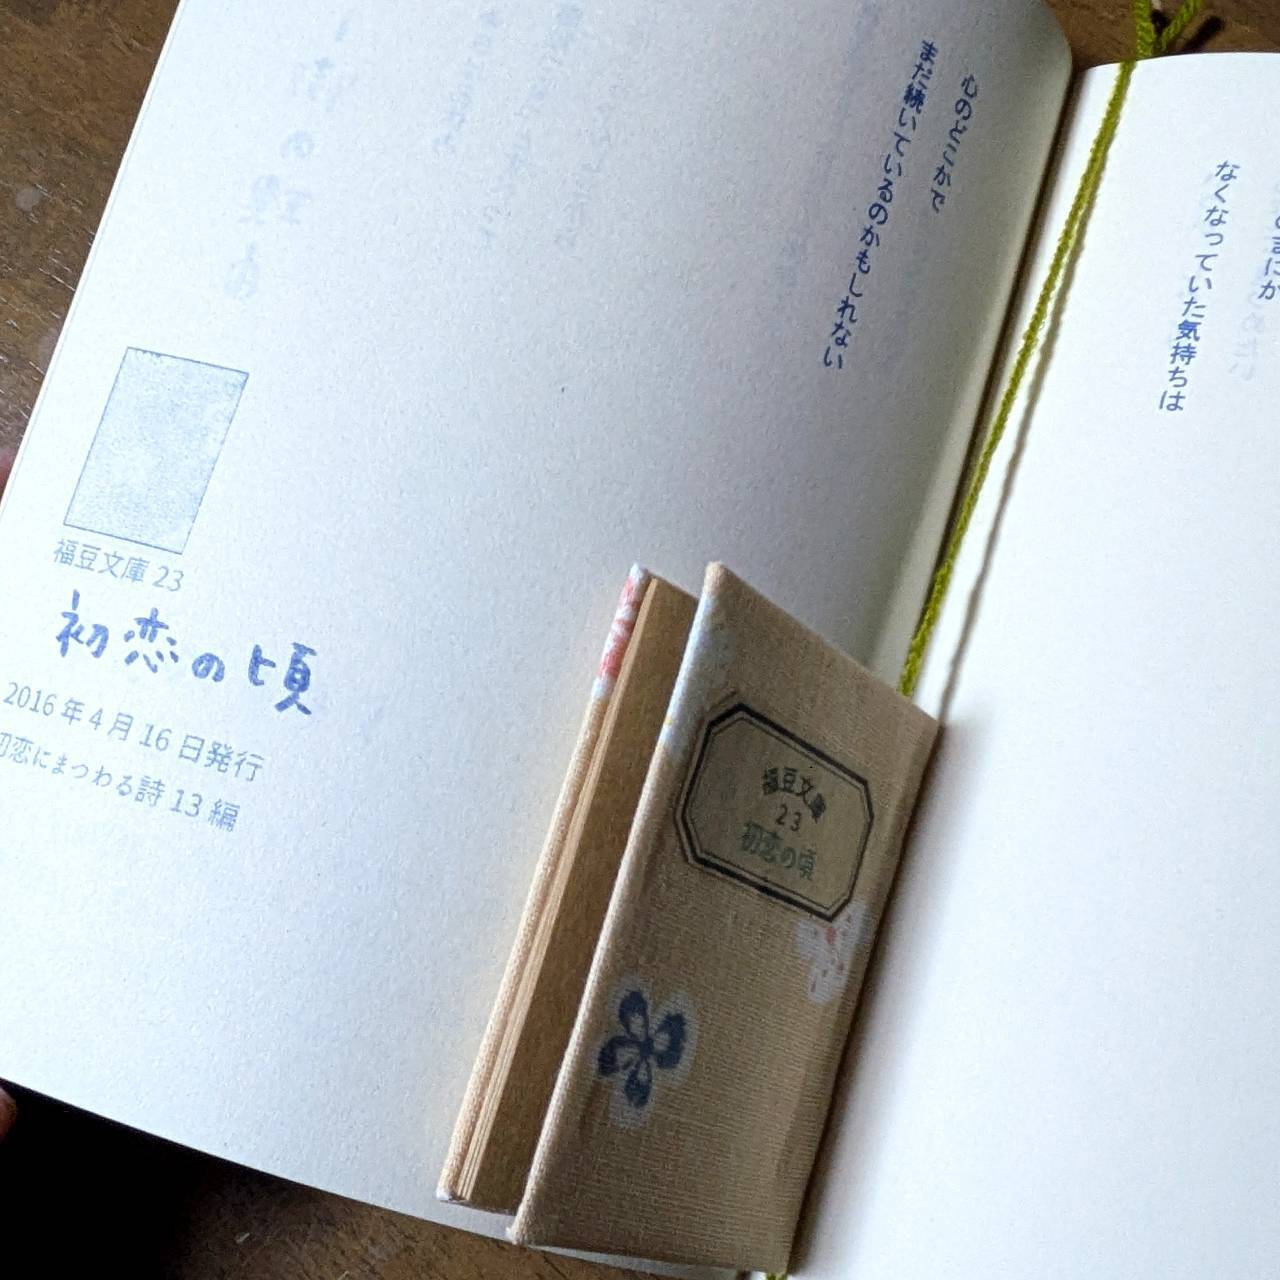 なくなっていた気持ちは
心のどこかで
まだ続いているのかもしれない
福豆文庫 23
初恋の頃
2016年4月16日発行
初恋にまつわる詩13編
福豆文庫
23
初恋の頃